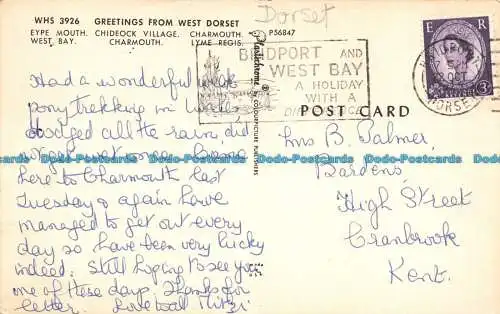 Dorset
WHS 3926 GREETINGS FROM WEST DORSET
EYPE MOUTH. CHIDEOCK VILLAGE. CHARMOUTH.
WEST BAY. CHARMOUTH. LYME REGIS.
P56847
Plastichrome ®
COLOURPICTURE PUBLISHERS
BRIDPORT AND
WEST BAY
A HOLIDAY
WITH A
E R
OCT
DORSET
3D
POST CARD
Had a wonderful week
pony trekking in Wales,
dodged all the rain did
not get wet once. Came
here to Charmouth last
Tuesday & again have
managed to get out every
day so have been very lucky
indeed. Still hoping to see you
one of these days. Thanks for
letter. Love to all Mitzi
Mrs B. Palmer,
Bardens,
High Street
Cranbrook
Kent.
Dodo-Postcards Dodo-Postcards Dodo-Postcards Dodo-Postcards Dodo-Postcards